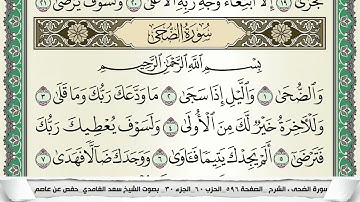 تُجْزَىٰٓ ١٩ إِلَّا ٱبْتِغَآءَ وَجْهِ رَبِّهِ ٱلْأَعْلَىٰ ٢٠ وَلَسَوْفَ يَرْضَىٰ ٢١
سُورَةُ الضُّحَىٰ
بِسْمِ ٱللَّهِ ٱلرَّحْمَٰنِ ٱلرَّحِيمِ
وَٱلضُّحَىٰ ١ وَٱلَّيْلِ إِذَا سَجَىٰ ٢ مَا وَدَّعَكَ رَبُّكَ وَمَا قَلَىٰ ٣
وَلَلْآخِرَةُ خَيْرٌ لَّكَ مِنَ ٱلْأُولَىٰ ٤ وَلَسَوْفَ يُعْطِيكَ رَبُّكَ
فَتَرْضَىٰٓ ٥ أَلَمْ يَجِدْكَ يَتِيمًا فَـَٔاوَىٰ ٦ وَوَجَدَكَ ضَآلًّا فَهَدَىٰ ٧
سورة الضحى ، الشرح _ الصفحة ٥٩٦_ الحزب ٦٠_ الجزء ٣٠_ بصوت الشيخ سعد الغامدي_ حفص عن عاصم